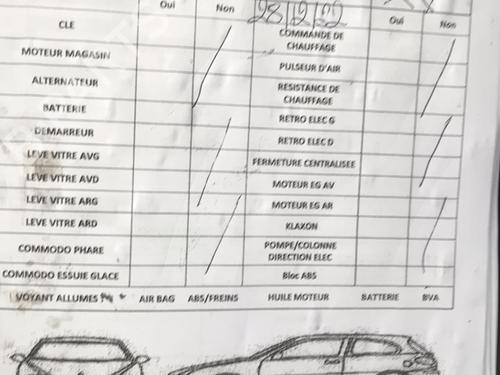 Oui Non 28/12/22 Oui Non
CLE COMMANDE DE CHAUFFAGE
MOTEUR MAGASIN PULSEUR D'AIR
ALTERNATEUR RESISTANCE DE CHAUFFAGE
BATTERIE RETRO ELEC G
DEMARREUR RETRO ELEC D
LEVE VITRE AVG FERMETURE CENTRALISEE
LEVE VITRE AVD MOTEUR EG AV
LEVE VITRE ARG MOTEUR EG AR
LEVE VITRE ARD KLAXON
COMMODO PHARE POMPE/COLONNE DIRECTION ELEC
COMMODO ESSUIE GLACE Bloc ABS
VOYANT ALLUMES AIR BAG ABS/FREINS HUILE MOTEUR BATTERIE BVA